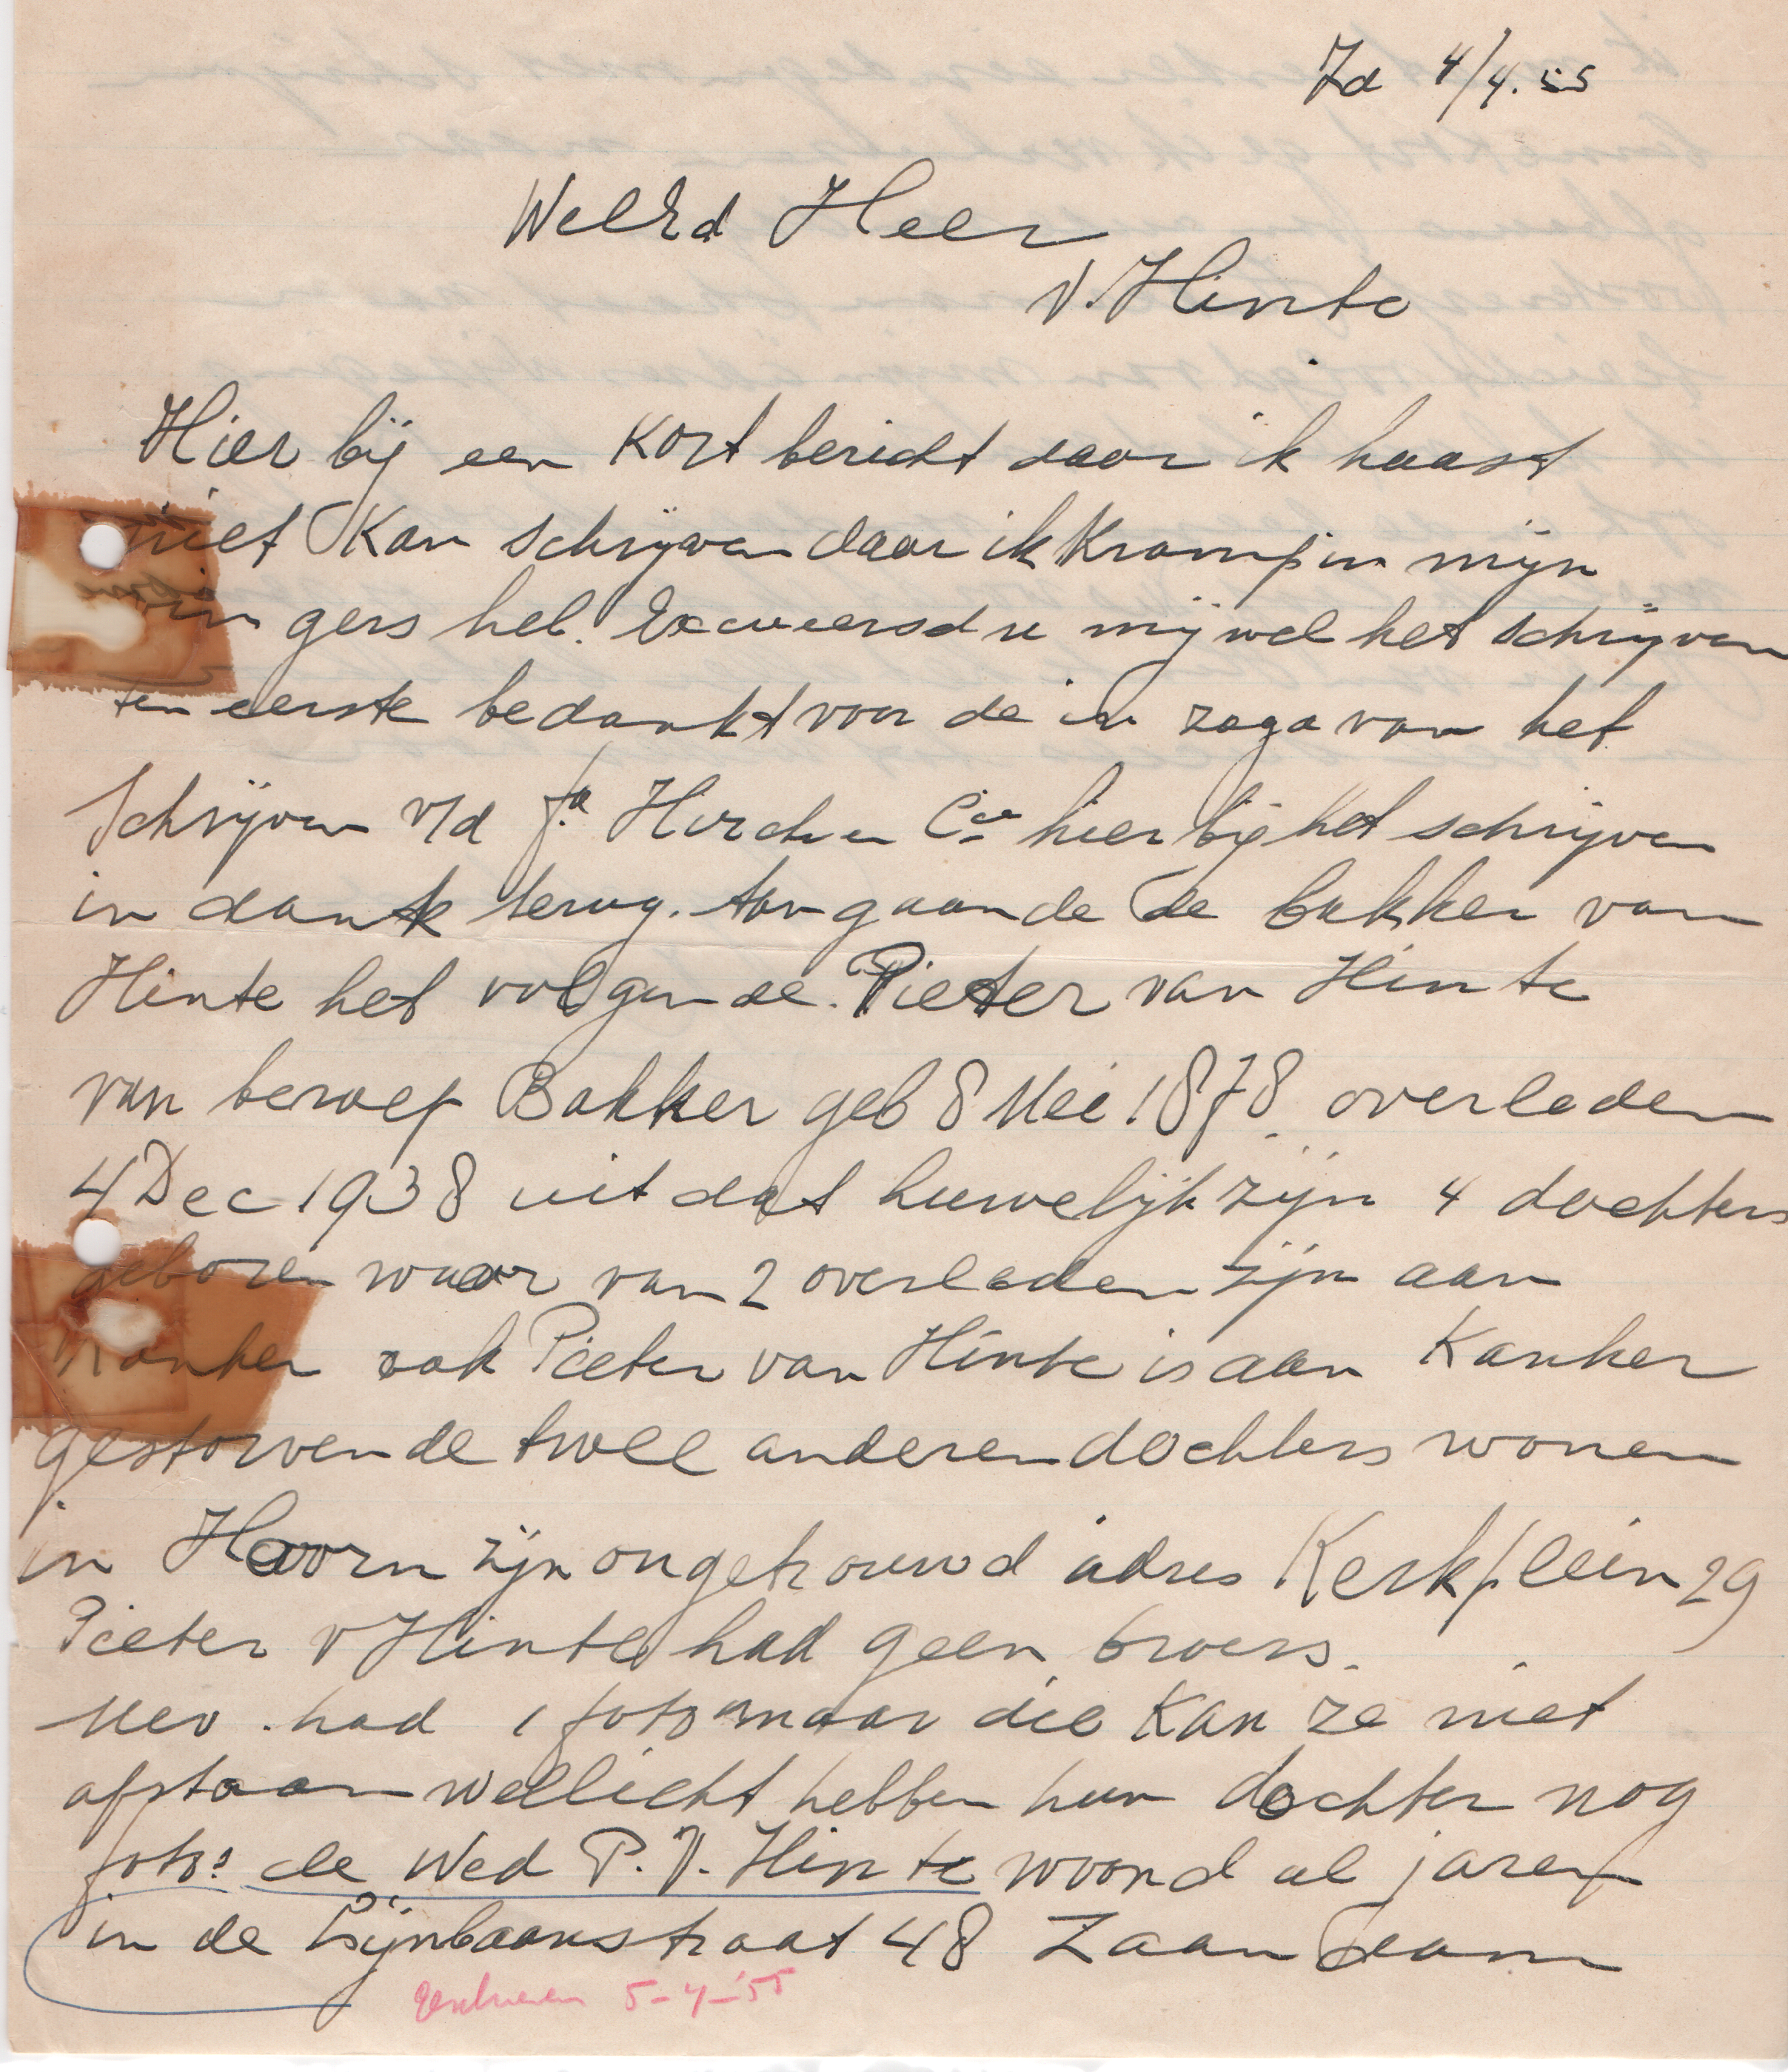 Zd 4/4.55
WelEd Heer
v. Hinte
Hier bij een kort bericht daar ik haast
niet kan schrijven daar ik kramp in mijn
vin gers heb. Excuseersd u mij wel het schrijven
ten eerste bedankt voor de in zage van het
schrijven v/d fa Hirch en Cie hier bij het schrijven
in dank terug. Aan gaande de bakker van
Hinte het volgende. Pieter van Hinte
van beroep Bakker geb 8 Mei 1878 overleden
4 Dec 1938 uit dat huwelijk zijn 4 dochters
geboren waar van 2 overleden zijn aan
kanker ook Pieter van Hinte is aan Kanker
gestorven de twee anderen dochters wonen
in Hoorn zijn ongetrouwd adres Kerkplein 29
Pieter v Hinte had geen broers.
Mev. had 1 foto maar die kan ze niet
afstaan wellicht hebben hun dochter nog
foto's de Wed P. V. Hinte woond al jaren
in de Lijnbaanstraat 48 Zaandam
Geschreven 5-4-'55